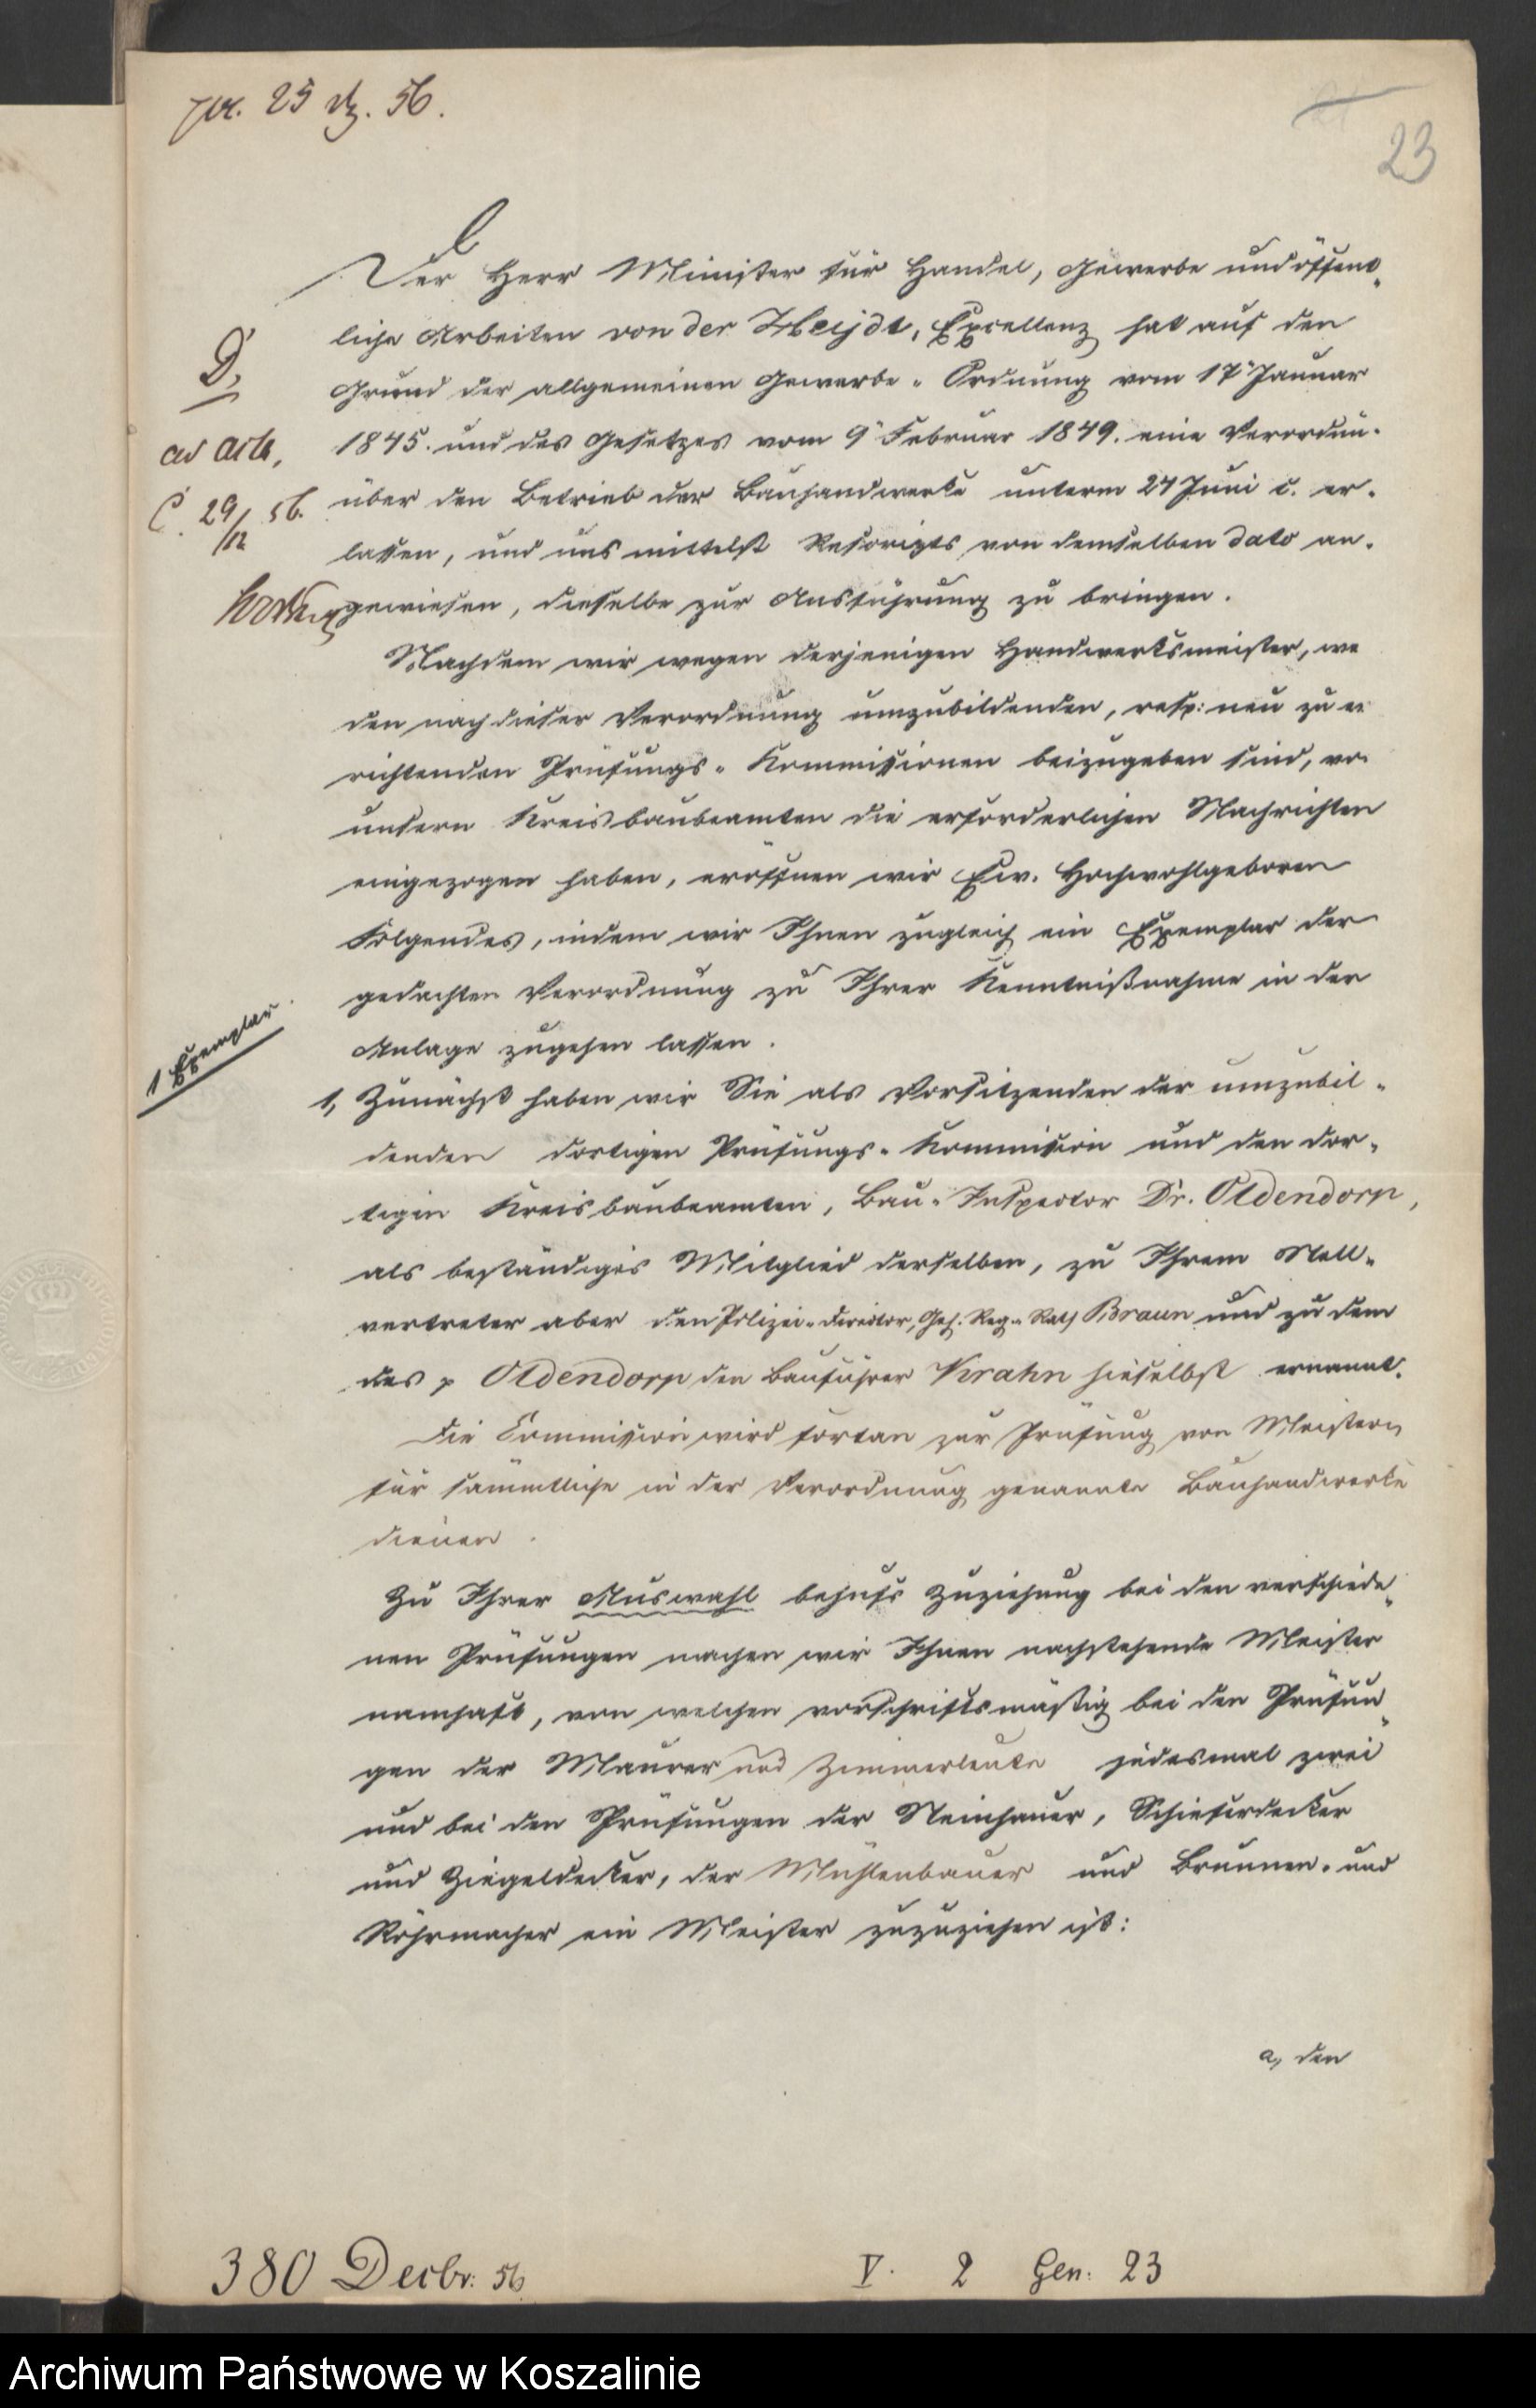 pr. 25 Dz. 56.
23
Der Herr Minister für Handel, Gewerbe und öffent-
liche Arbeiten von der Heijdt, Excellenz hat auf den
D.
Grund der allgemeinen Gewerbe-Ordnung vom 17 Januar
ad acta,
1845. und des Gesetzes vom 9 Februar 1849. eine Verordnu-
C. 29/12 56.
über den Betrieb der Bauhandwerke unterm 24 Juni c. er-
lassen, und uns mittelst Rescripts von demselben dato an-
gewiesen, dieselbe zur Ausführung zu bringen.
Nachdem wir wegen derjenigen Handwerksmeister, we
den nach dieser Verordnung umzubildenden, resp: neu zu er
richtenden Prüfungs-Kommissionen beizugeben sind, vo
unsern Kreisbaubeamten die erforderlichen Nachrichten
eingezogen haben, eröffnen wir Ew. Hochwohlgeboren
Folgendes, indem wir Ihnen zugleich ein Exemplar der
gedachten Verordnung zu Ihrer Kenntnißnahme in der
1 Exemplar.
Anlage zugehen lassen.
1, Zunächst haben wir Sie als Vorsitzenden der umzubil-
denden dortigen Prüfungs-Kommission und den dor-
tigen Kreisbaubeamten, Bau-Inspector Dr. Oldendorp,
als beständiges Mitglied derselben, zu Ihrem Stell-
vertreter aber den Polizei-Director, Geh. Reg-Rath Braun und zu dem
des p Oldendorp den Bauführer Krahn hieselbst ernannt.
Die Commission wird fortan zur Prüfung von Meistern
für sämmtliche in der Verordnung genannte Bauhandwerke
dienen.
Zu Ihrer Auswahl behufs Zuziehung bei den verschiede-
nen Prüfungen machen wir Ihnen nachstehende Meister
namhaft, von welchen vorschriftsmäßig bei den Prüfun-
gen der Maurer und Zimmerleute jedesmal zwei
und bei den Prüfungen der Steinhauer, Schieferdecker
und Ziegeldecker, der Mühlenbauer und Brunnen- und
Röhrmacher ein Meister zuzuziehen ist:
a, den
380 Decbr: 56
V. 2 Gen: 23
Archiwum Państwowe w Koszalinie